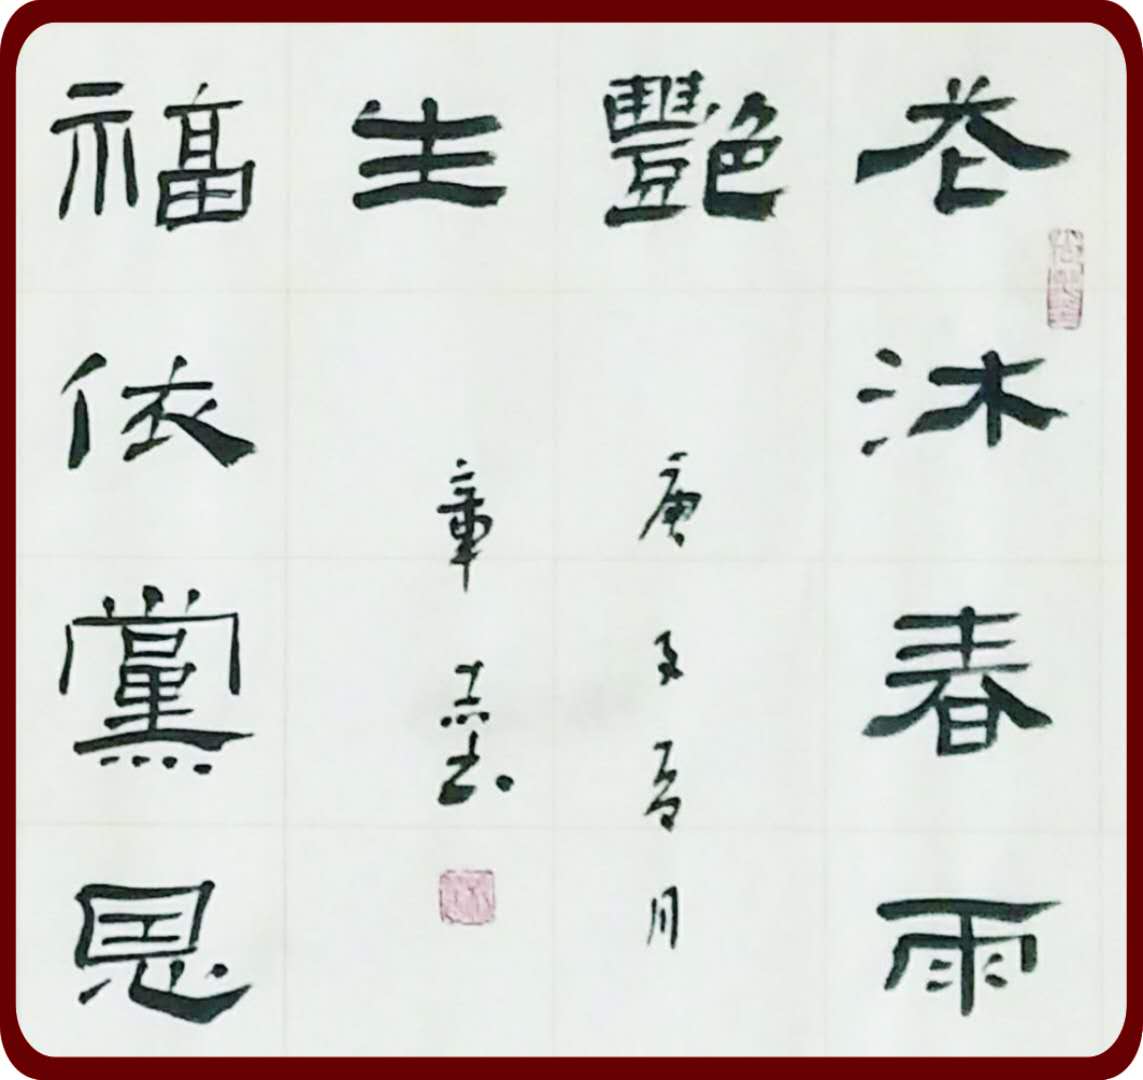 花沐春雨
艷
福依黨恩
生
庚子夏月
章志书